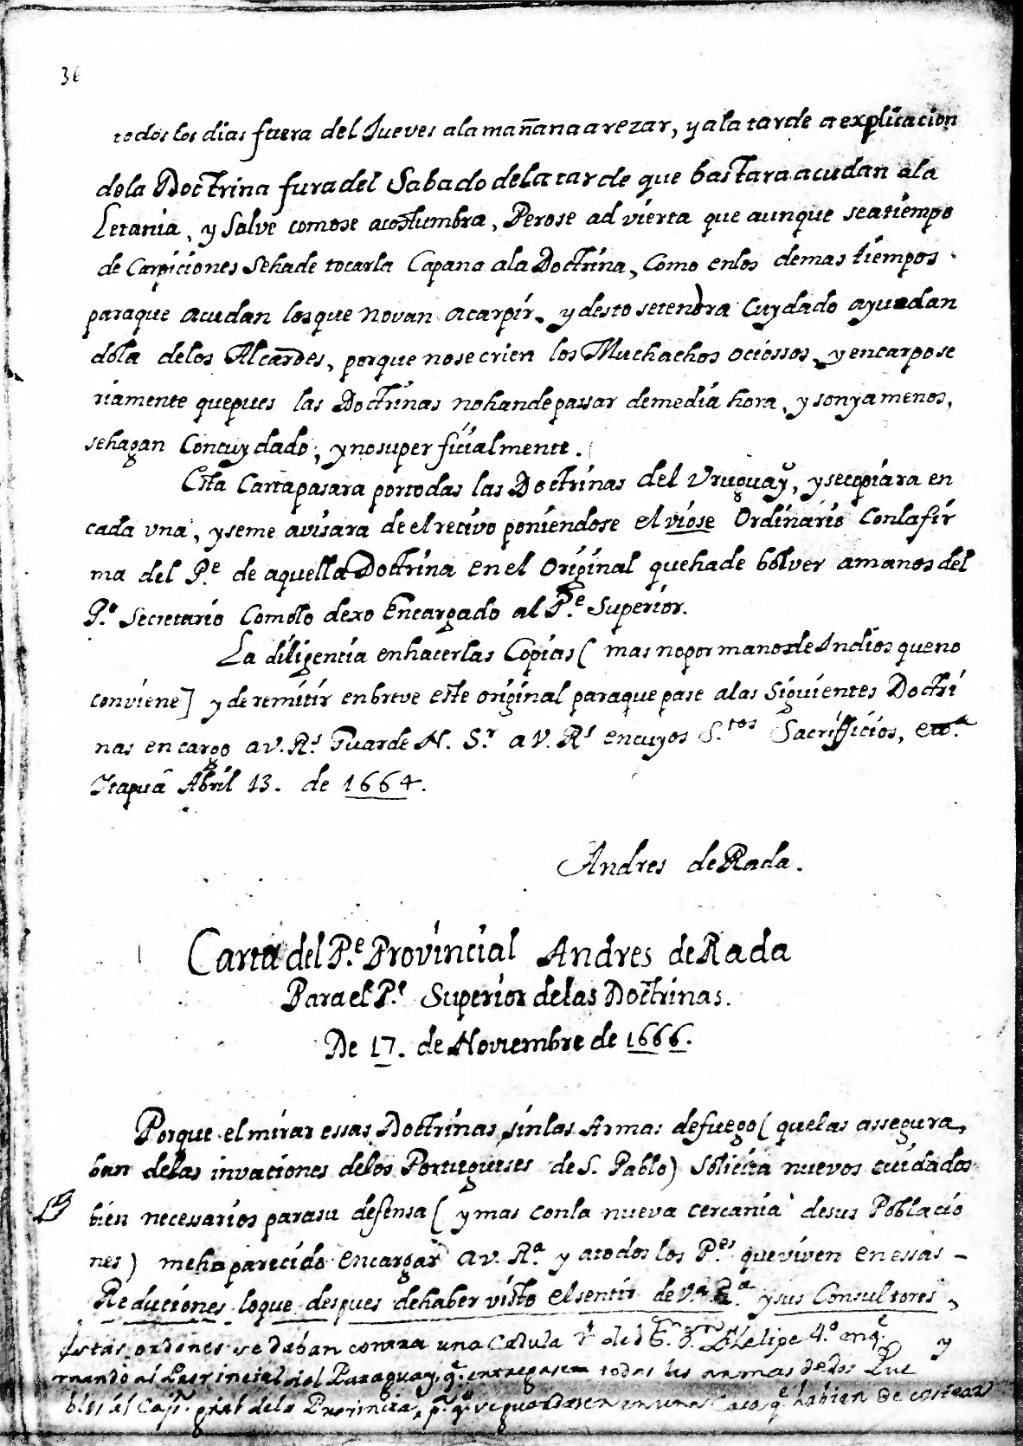 36
todos los dias fuera del Jueves ala mañana a rezar, y ala tarde a explicacion
dela Doctrina fura del Sabado dela tarde que bastara acudan ala
Letania, y Salve comose acostumbra, Perose advierta que aunque sea tiempo
de Carpiciones Sehade tocarla Capana ala Doctrina, Como enlos demas tiempos
paraque acudan losque no van acarpir. y desto setendra Cuydado ayudan
dola delos Alcardes, porque nose crien los Muchachos ociossos, y encarpose
riamente quepues las Doctrinas nohandepassar demedia hora, y son ya menos,
sehagan Concuydado, y nosuperficialmente.
Esta Cartapasara portodas las Doctrinas del Uruguay, y secopiara en
cada vna, y seme avisara de el recivo poniendose el viose Ordinario Conlafir
ma del P.e de aquella Doctrina en el original quehade bolver amanos del
P.e Secretario Comolo dexo Encargado al P.e Superior.
La diligencia enhacerlas Copias ( mas nopor manosde Indios queno
conviene] y de remitir enbreve este original paraque pase alas Siguientes Doctri
nas encargo a V. R.s Guarde N. S.r a V. R.s encuyos S.tos Sacrifficios, etc.a
Itapuâ Abril 13. de 1664.
Andres de Rada.
Carta del P.e Provincial Andres de Rada
Para el P.e Superior delas Doctrinas.
De 17. de Noviembre de 1666.
Porque el mirar essas Doctrinas sinlas Armas defuego ( quelas assegura,
ban delas invaciones delos Portugueses de S. Pablo) Solicita nuevos cuidados
bien necessarios parasu defensa ( y mas conla nueva cercania desus Poblacio
nes) meha parecido encargar a V. R.a y atodos los P.es queviven en essas -
Reduciones loque despues dehaber visto el sentir de V.a R.a y sus Consultores,
Estas ordenes se daban contra una Cedula de Phelipe 4.º enq.e
y
mando al Provincial del Paraguay, q.e entregasen todas las armas de los Pue
blos ál Cap.n gral dela Provincia, p.a q.e se guardasen en una Casa q.e habian de costear